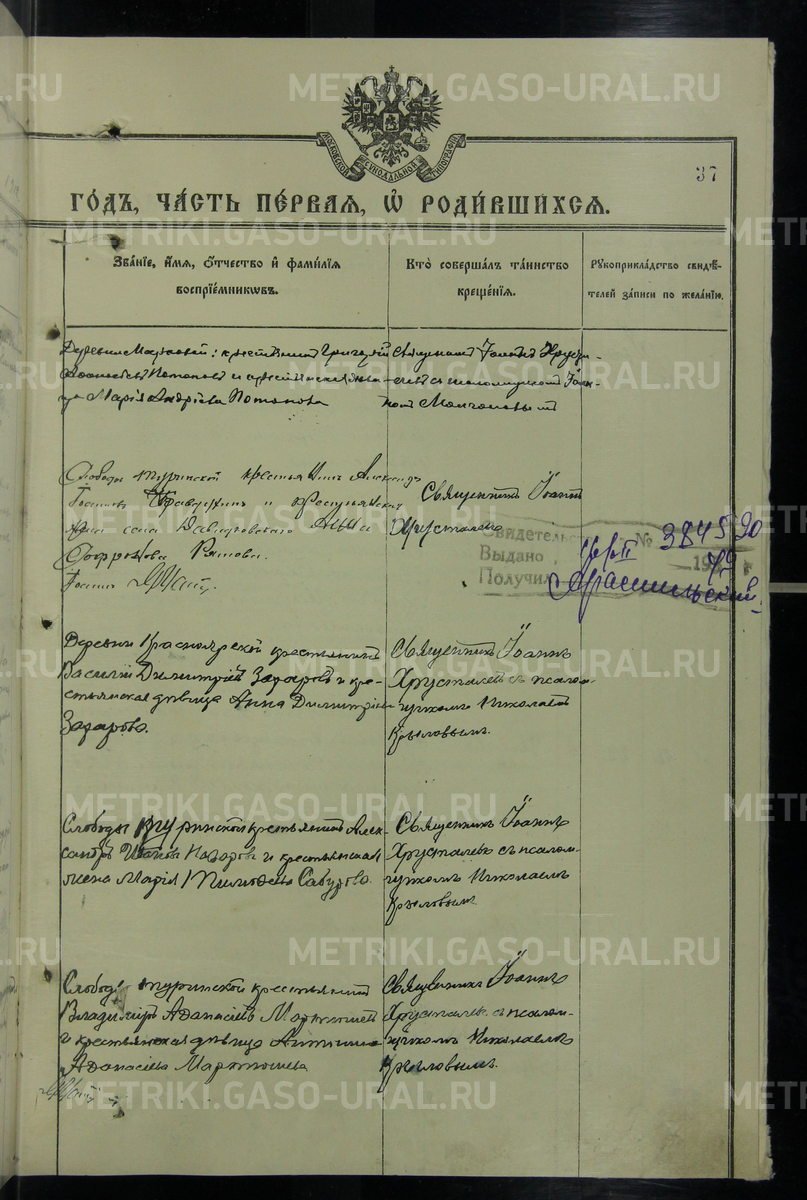 METRIKI.GASO-URAL.RU
МОСКОВСКОЙ СѴНОДАЛЬНОЙ ТИПОГРАФІИ
37
ГОДЪ, ЧАСТЬ ПЕРВАЯ, Ѡ РОДИВШИХСЯ.
Званіе, имя, отчество и фамилія воспріемниковъ.
Кто совершалъ таинство крещенія.
Рукоприкладство свидѣтелей записи по желанію.
крестьянинъ Григорій
Потаповъ и крестьянская
Марія Андрѣева Потапова
Священникъ Іоаннъ Хруста-
левъ съ псаломщикомъ Іоан-
номъ
Слободы Туринской крестьянинъ Александръ
и крестьянская
села Давыдовскаго Анна
Священникъ Іоаннъ
Хрусталевъ
Свидетельс № 384590
Выдано
Получил
Деревни Красноярской крестьянинъ
Василій Димитріевъ Захаровъ и кре-
стьянская дѣвица Анна Димитріева
Захарова.
Священникъ Іоаннъ
Хрусталевъ съ псалом-
щикомъ Николаемъ
Крыловымъ.
Слободы Туринской крестьянинъ Алек-
сандръ Назаровъ и крестьянская
жена Марія Тимофеева Сабурова.
Священникъ Іоаннъ
Хрусталевъ съ псалом-
щикомъ Николаемъ
Крыловымъ.
Слободы Туринской крестьянинъ
Владиміръ Аѳанасіевъ Мартюшевъ
и крестьянская дѣвица
Аѳанасіева Мартюшева
Священникъ Іоаннъ
Хрусталевъ съ псалом-
щикомъ Николаемъ
Крыловымъ.